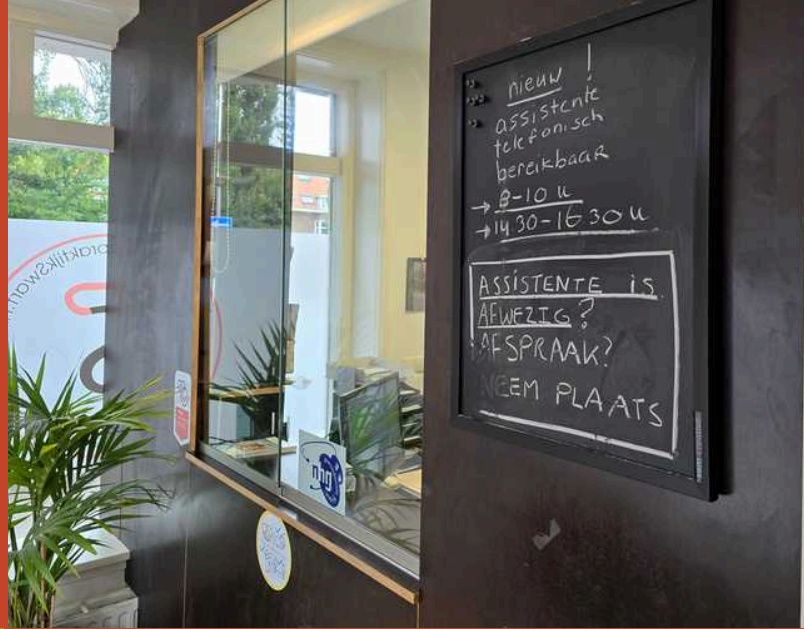 nieuw !
assistente
telefonisch
bereikbaar
→ 8-10 u
→ 14 30-16 30 u
ASSISTENTE is
AFWEZIG?
AFSPRAAK?
NEEM PLAATS